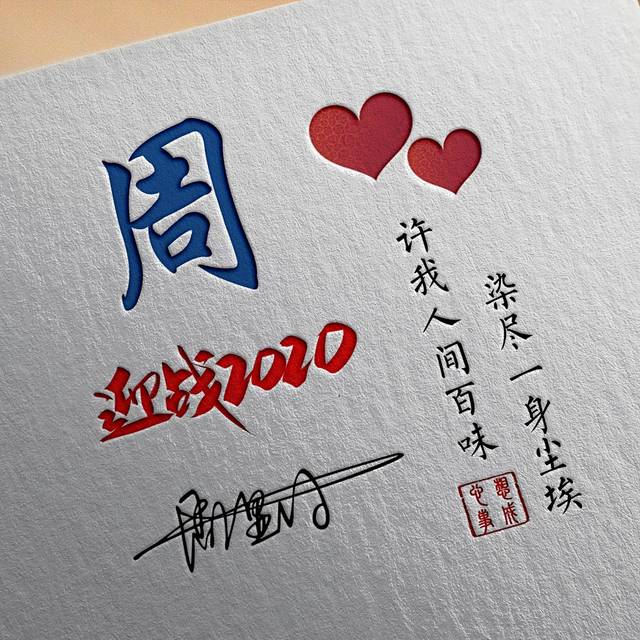 周
迎战2020
许我人间百味
染尽一身尘埃
心想
事成